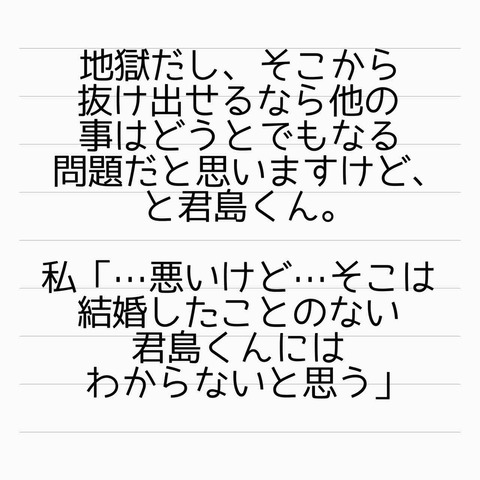 地獄だし、そこから
抜け出せるなら他の
事はどうとでもなる
問題だと思いますけど、
と君島くん。
私「…悪いけど…そこは
結婚したことのない
君島くんには
わからないと思う」